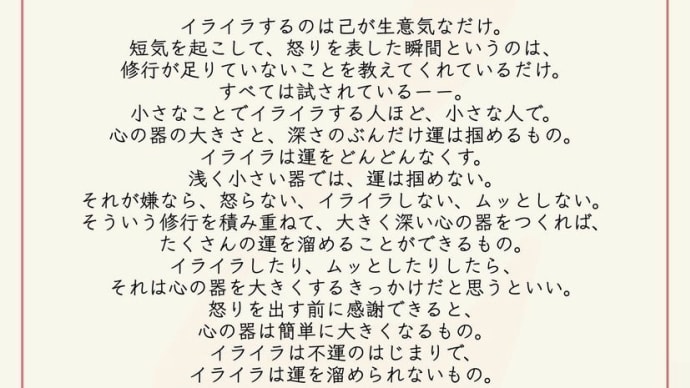 イライラするのは己が生意気なだけ。
短気を起こして、怒りを表した瞬間というのは、
修行が足りていないことを教えてくれているだけ。
すべては試されているーー。
小さなことでイライラする人ほど、小さな人で。
心の器の大きさと、深さのぶんだけ運は掴めるもの。
イライラは運をどんどんなくす。
浅く小さい器では、運は掴めない。
それが嫌なら、怒らない、イライラしない、ムッとしない。
そういう修行を積み重ねて、大きく深い心の器をつくれば、
たくさんの運を溜めることができるもの。
イライラしたり、ムッとしたりしたら、
それは心の器を大きくするきっかけだと思うといい。
怒りを出す前に感謝できると、
心の器は簡単に大きくなるもの。
イライラは不運のはじまりで、
イライラは運を溜められないもの。